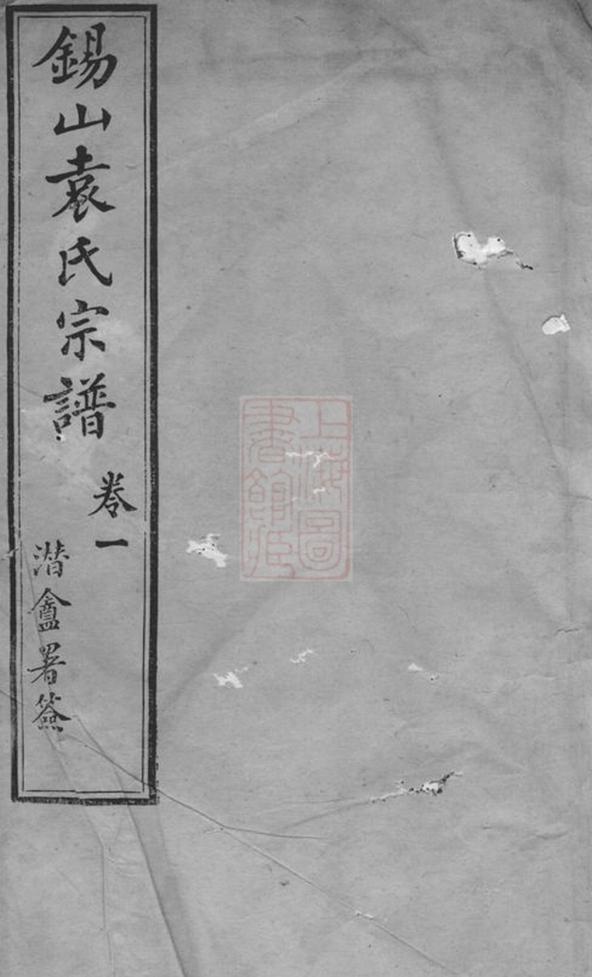 錫山袁氏宗譜
卷一
潜盦署签
上海圖
書館藏